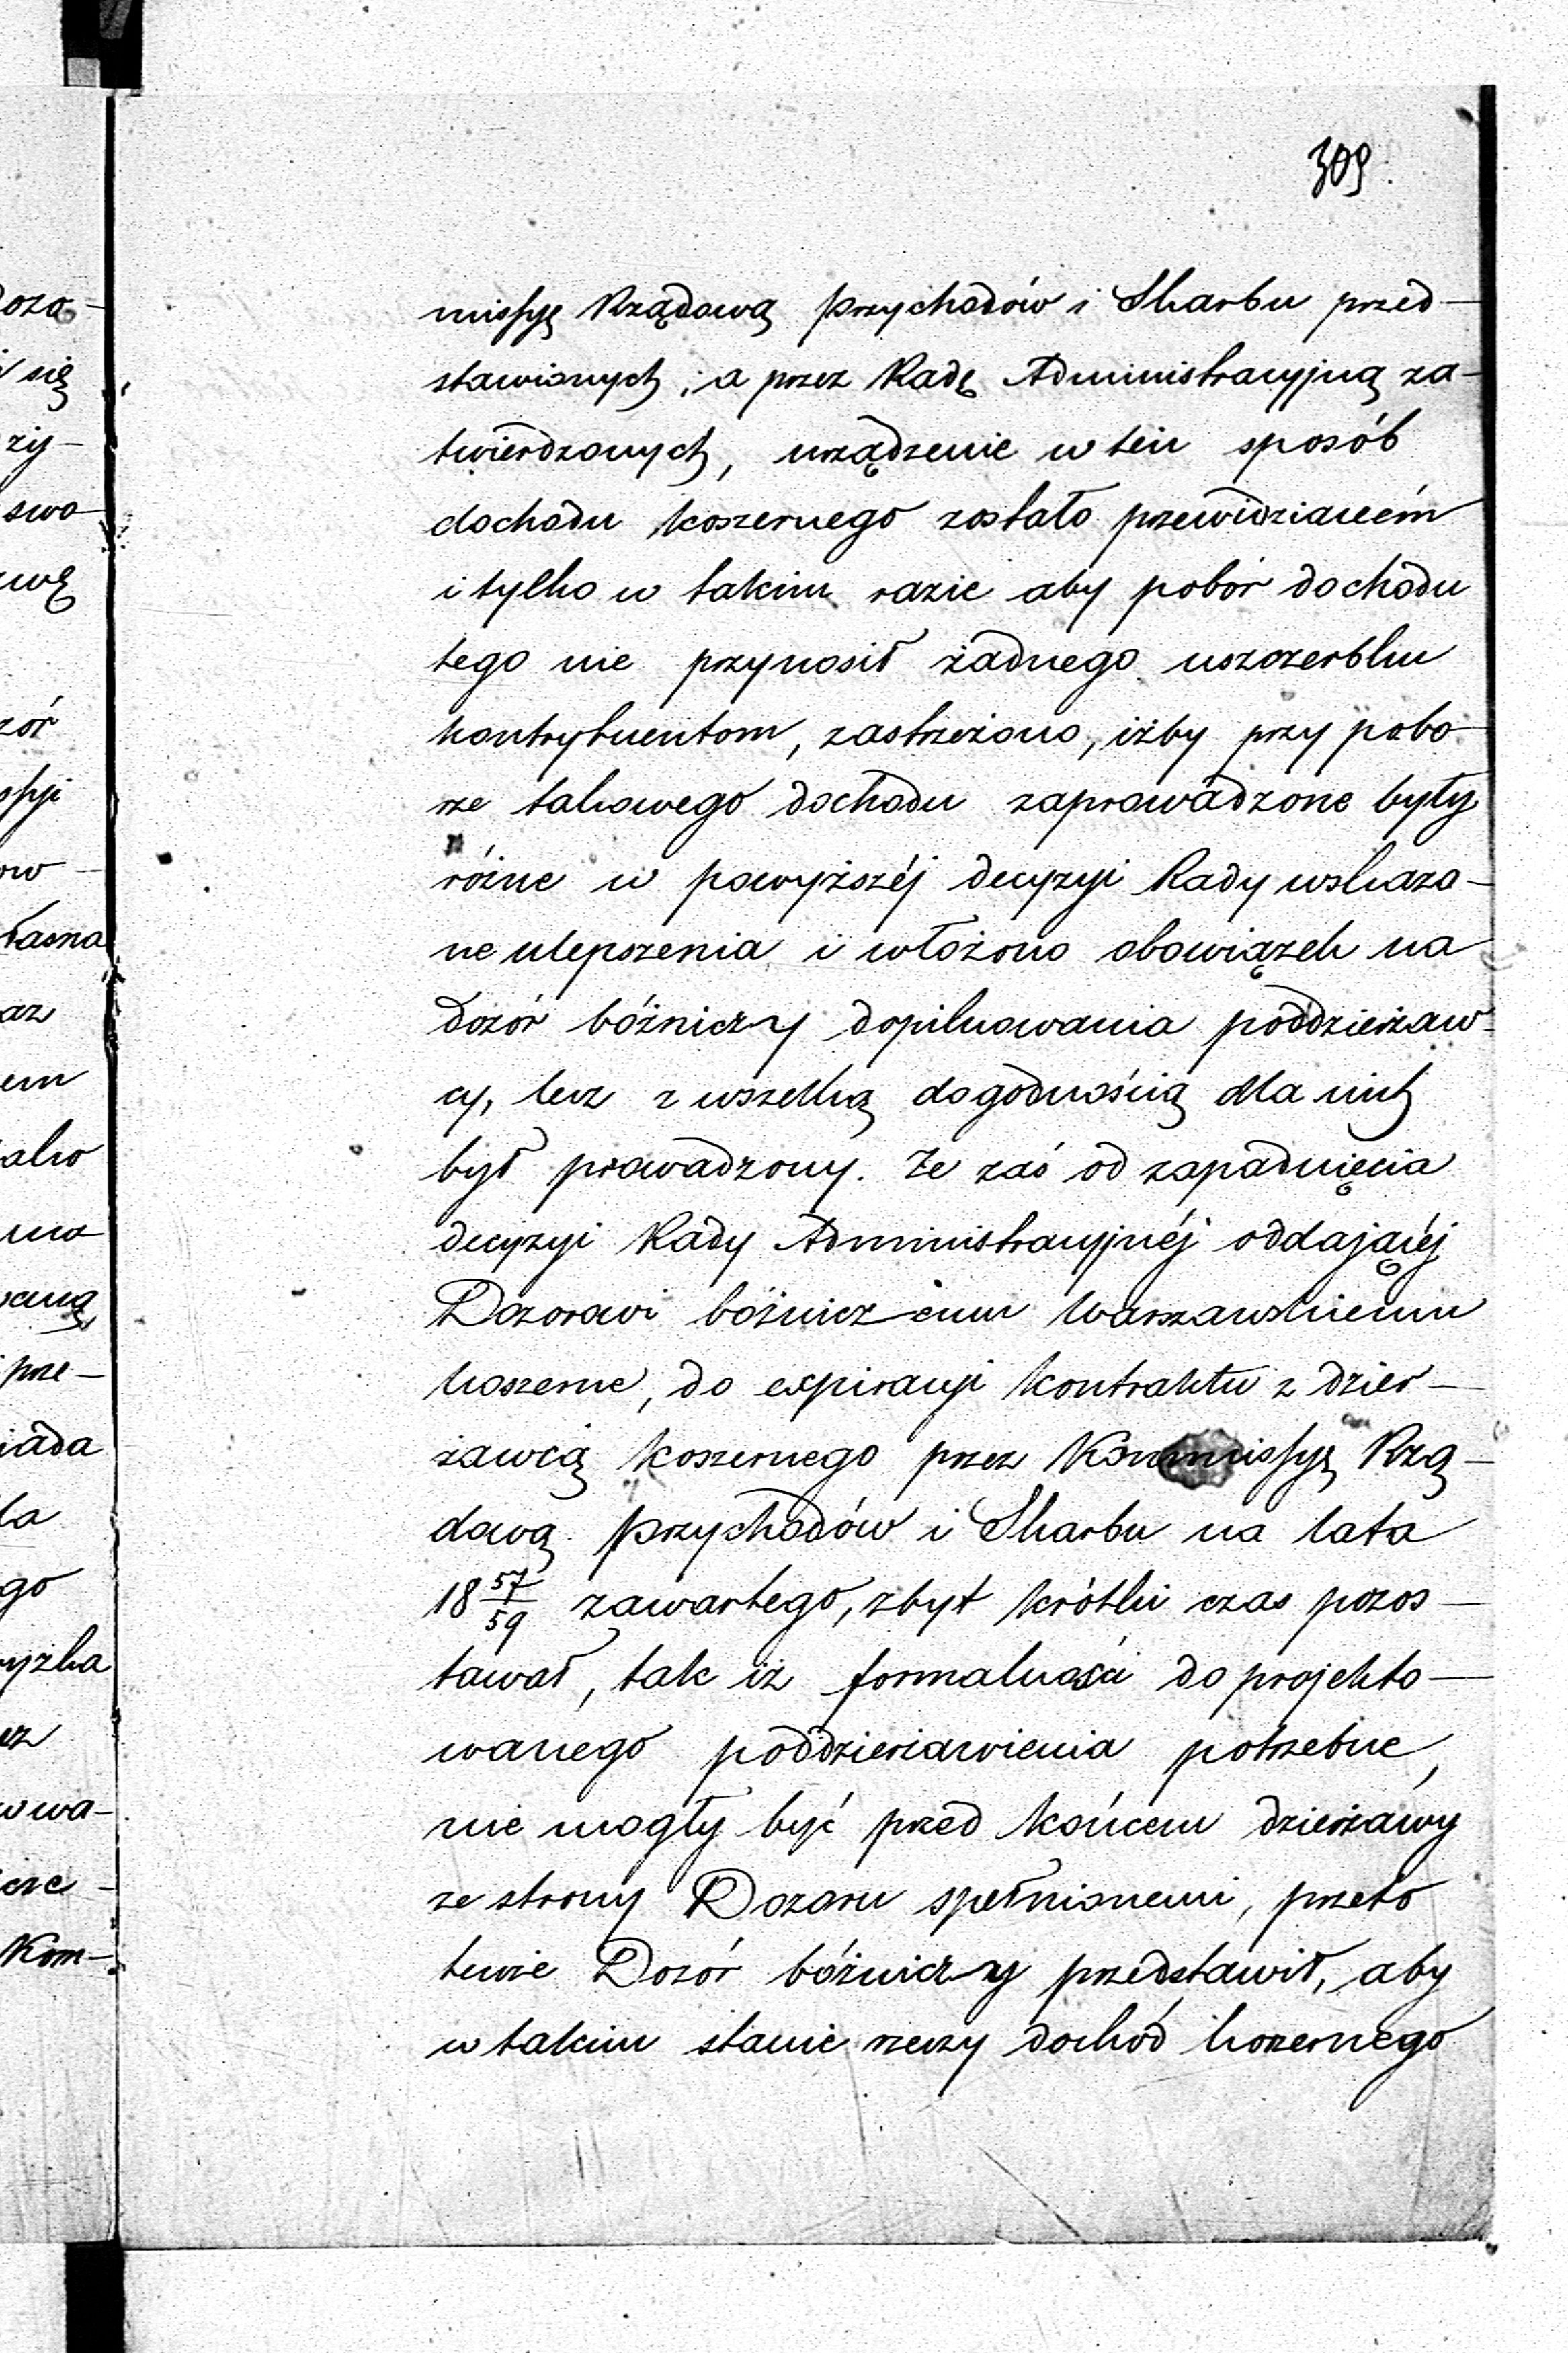 309
missyę Rządową Przychodów i Skarbu przed-
stawionych, a przez Radę Administracyjną za-
twierdzonych, urządzenie w ten sposób
dochodu koszernego zostało przewidzianém
i tylko w takim razie aby pobór dochodu
tego nie przynosił żadnego uszczerbku
kontrybuentom, zastrzeżono, iżby przy pobo-
rze takowego dochodu zaprowadzone były
różne w powyższéj decyzyi Rady wskaza-
ne ulepszenia i włożono obowiązek na
dozór bóżniczy dopilnowania poddzierżaw-
cy, lecz z wszelką dogodnością dla nich
był prowadzony. Że zaś od zapadnięcia
decyzyi Rady Administracyjnéj oddającéj
Dozorowi bóżniczemu Warszawskiemu
koszerne, do expiracyi kontraktu z dzier-
żawcą koszernego przez Kommissyę Rzą-
dową Przychodów i Skarbu na lata
18 57/59 zawartego, zbyt krótki czas pozos-
tawał, tak iż formalności do projekto-
wanego poddzierżawienia potrzebne,
nie mogły być przed końcem dzierżawy
ze strony Dozoru spełnionemi, przeto
tenże Dozór bóżniczy przedstawił, aby
w takim stanie rzeczy dochód koszernego
doza-
się
ży-
swo-
zór
ssyi
ow-
łasna
az
em
ako
prze-
iada
la
go
yzka
wa-
Kom-